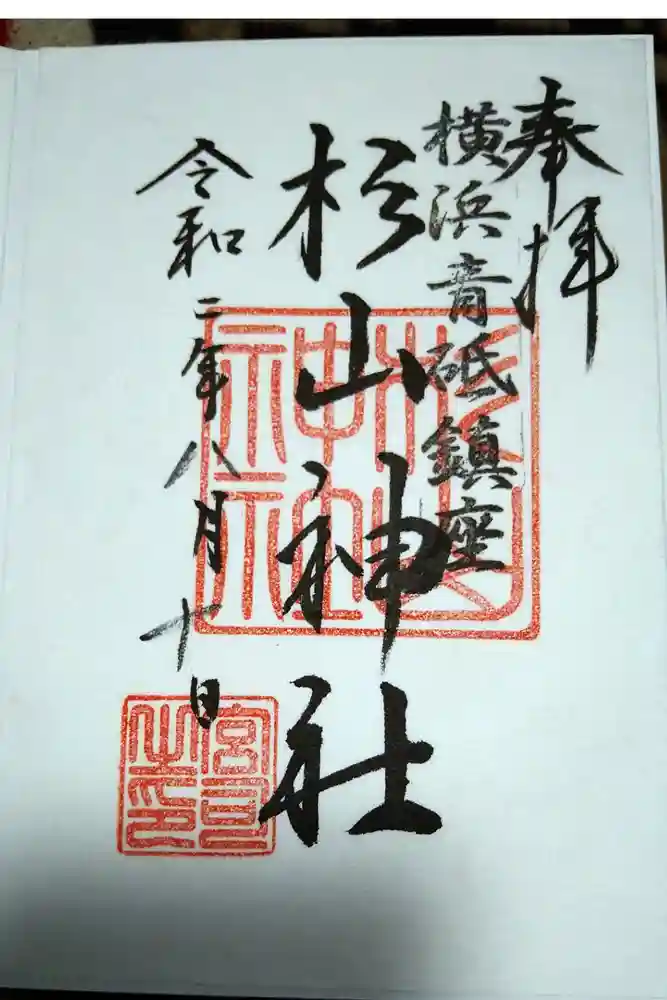 奉拝
横浜青砥鎮座
杉山神社
令和二年八月十日
杉山
神社
宮司
之印